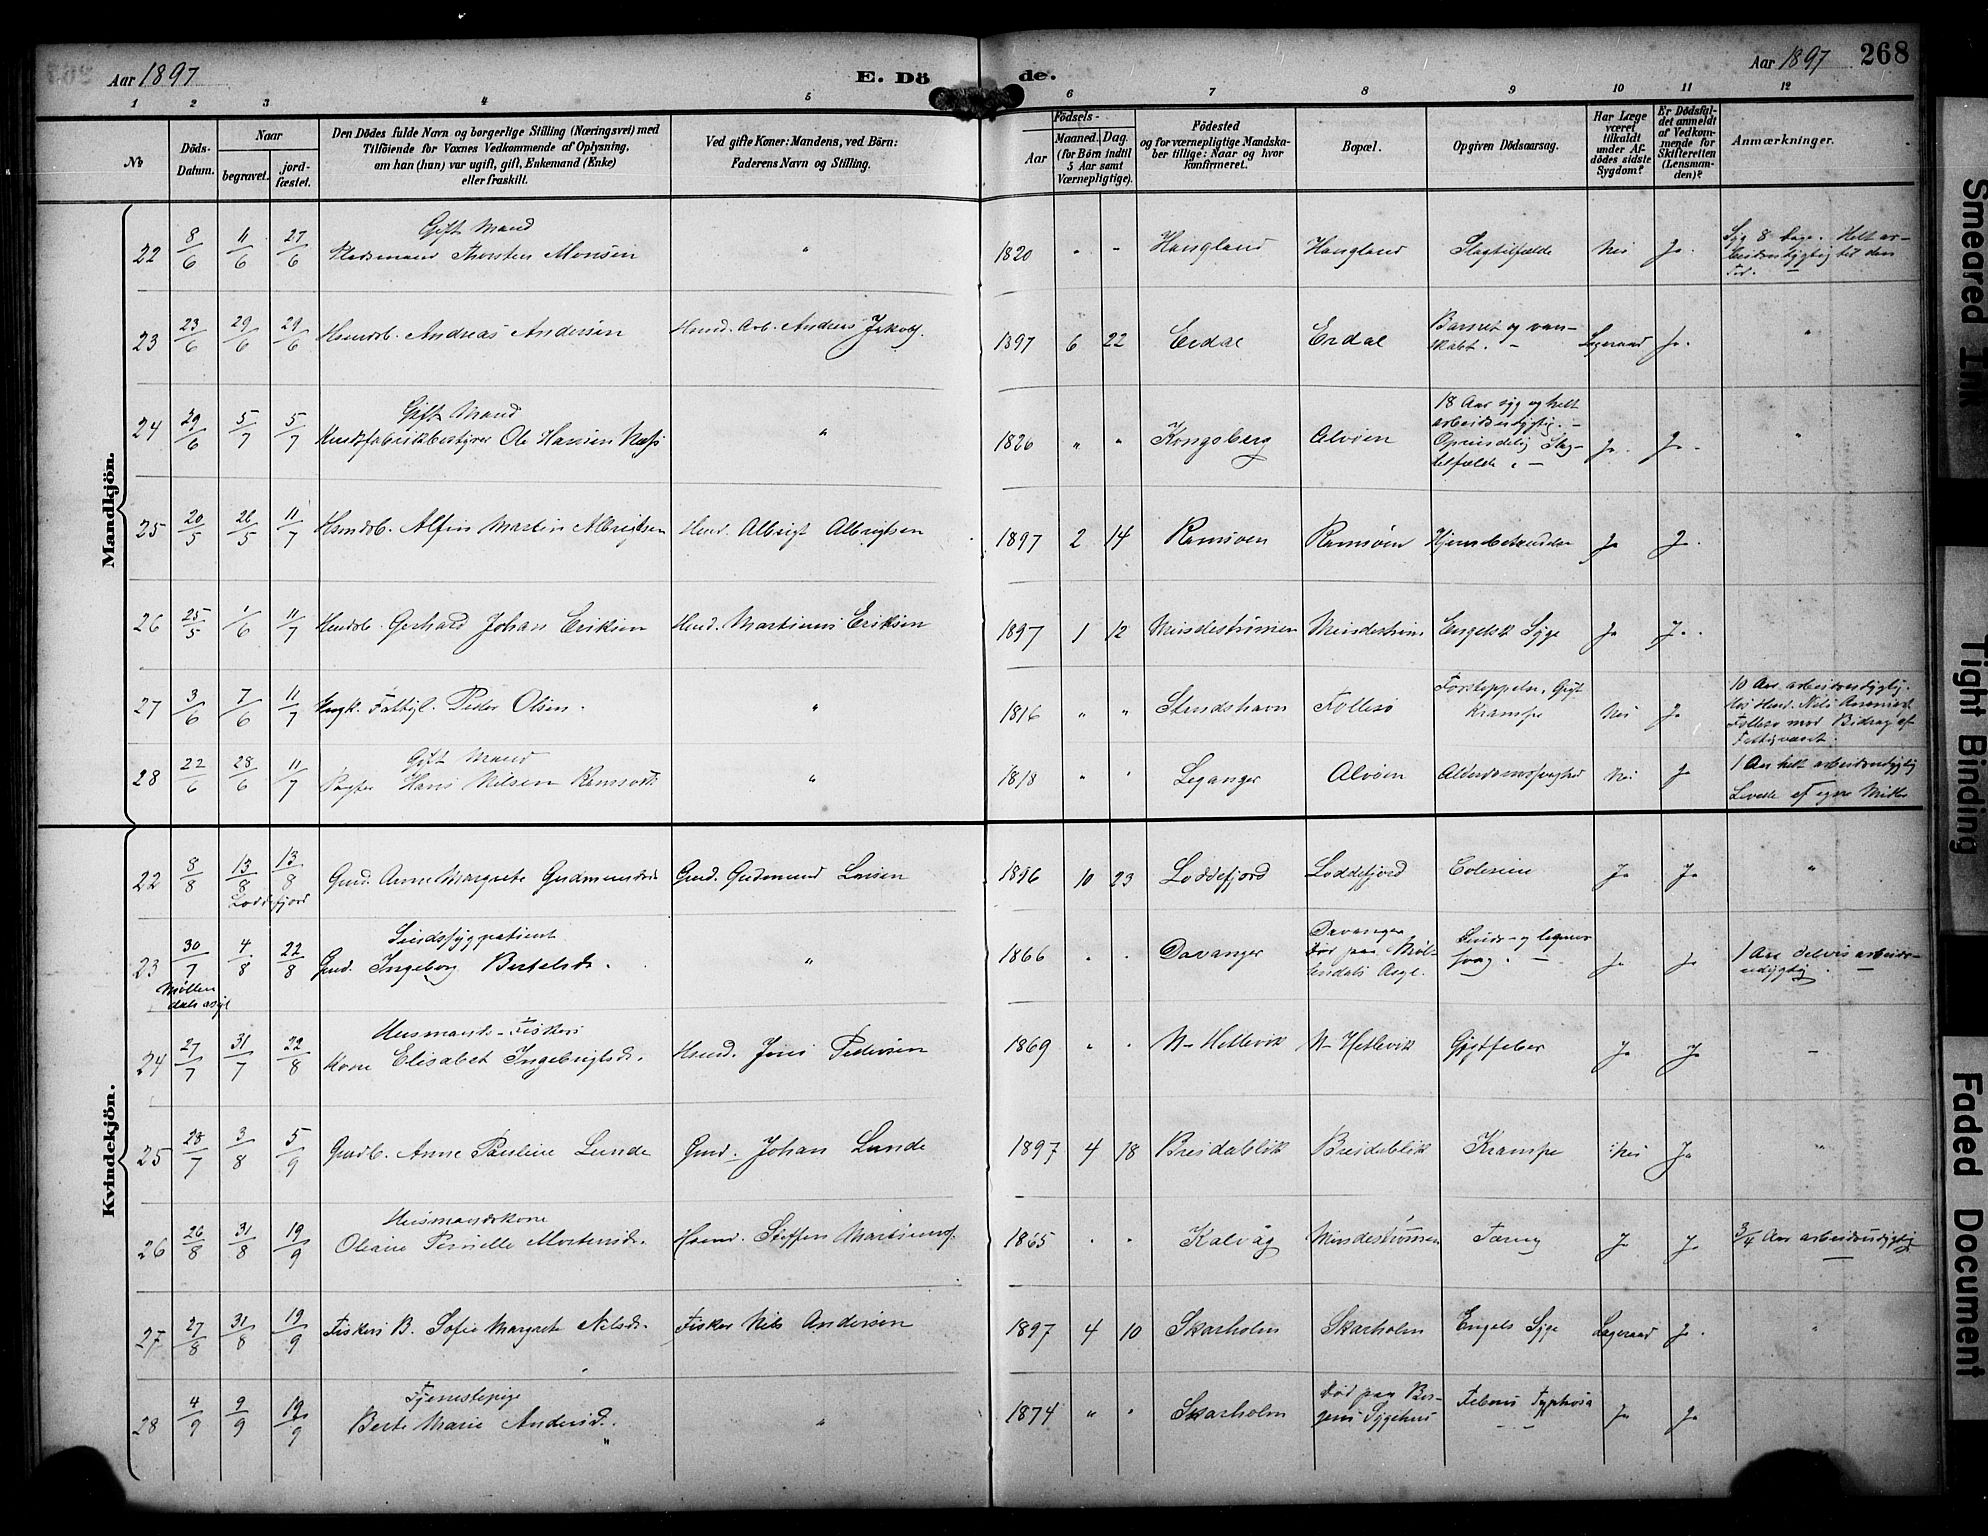 Aar 1897
E. Dö de.
Aar 1897 268
1 2 3 4 5 6 7 8 9 10 11 12
No
Döds-Datum.
Naar
begravet.
jord-fæstet.
Den Dödes fulde Navn og borgerlige Stilling (Næringsvei) med
Tilföiende for Voxnes Vedkommende af Oplysning,
om han (hun) var ugift, gift, Enkemand (Enke)
eller fraskilt.
Ved gifte Koner: Mandens, ved Börn:
Faderens Navn og Stilling.
Födsels-
Aar
Maaned. Dag.
(for Börn indtil
5 Aar samt
Værnepligtige).
Födested
og for værnepligtige Mandska-
ber tillige: Naar og hvor
konfirmeret.
Bopæl.
Opgiven Dödsaarsag.
Har Læge
været
tilkaldt
under Af-
dödes sidste
Sygdom?
Er Dödsfal-
det anmeldt
af Vedkom-
mende for
Skifteretten
(Lensman-
den)?
Anmærkninger.
Mandkjön.
22 8/6 11/6 27/6 Gift Mand
Thorsten Monsen " 1820 " " Haugland Haugland Slagtilfælde Nei Ja. Syg 8 Dage. Helt ar-
beidsdygtig til den
Tid.
23 23/6 29/6 29/6 Husmdsb. Andreas Andersen Husmd. Arb. Andreas Jakobs. 1897 6 22 Erdal Erdal Barnet og van-
skabt. Lægeraad Ja. "
24 29/6 5/7 5/7 Gift Mand
Krudtfabrikbestyrer Ole Hansen Næss " 1826 " " Kongsberg Alvøen 18 Aar syg og helt
arbeidsudygtig.
Oprindelig Slag-
tilfælde. Ja. Ja. "
25 20/5 26/5 11/7 Husmdsb. Alfin Martin Albrigtsen Husmd. Albrigt Albrigtsen 1897 2 14 Ramsøen Ramsøen Hjernebetændelse Ja J.
26 25/5 1/6 11/7 Husmdsb. Gerhard Johan Eriksen Husmd. Martinus Eriksen 1897 1 12 Mindestrømen Mindestrøm Engelsk Syge Ja Ja.
27 3/6 7/6 11/7 Ungk. Fattigl. Peder Olsen. " 1816 " " Strudshavn Follesø Forstoppelse, Gigt
Krampe Nei Ja 10 Aar arbeidsudygtig.
Hos Husmd. Nils
Follesø mod Bidrag af
Fattigvæsnet.
28 22/6 28/6 11/7 Gift Mand
Pagter Hans Nilsen Ramsvik " 1818 " " Leganger Alvøen Alderdomssvaghed Nei Ja 1 Aar helt arbeidsudygtig
Levede af egne Midler
Kvindekjön.
22 8/8 13/8 13/8 Loddefjord Gmd. Anne Margrete Gudmundsd. Gmd. Gudmund Larsen 1896 10 23 Loddefjord Loddefjord Colerine Ja Ja "
23 Möllen
dals asyl 30/7 4/8 22/8 Sindssygpatient
Gmd. Ingeborg Bertelsd. " 1866 " " Davanger Davanger
Död paa Møl-
lendals Asyl. Sinds- og legems-
svag. Ja Ja 1 Aar delvis arbeids-
udygtig.
24 27/7 31/7 22/8 Husmands- Fiskers
Kone Elisabet Ingebrigtsd. Husmd. Jens Pedersen 1869 " " N- Hetlevik N- Hetlevik Gigtfeber Ja Ja
25 28/7 3/8 5/9 Gmdb. Anne Pauline Lunde Gmd. Johan Lunde 1897 4 18 Breidablik Breidablik Krampe Nei Ja "
26 26/8 31/8 19/9 Husmandskone
Oliane Pernelle Mortensd. Husmd. Steffen Martinus. 1865 " " Kalvåg Mindestrømen Tæring Ja Ja 3/4 Aar arbeidsudygtig
27 27/8 31/8 19/9 Fiskers B. Sofie Margret Nilsd. Fisker Nils Andersen 1897 4 10 Skarholm Skarholm Engels Syge Lægeraad Ja. "
28 4/9 9/9 19/9 Tjenestepige
Berte Marie Andersd. " 1874 " " Skarholm Död paa Ber-
gens Sygehus Febris Typhosa Ja Ja
Smeared Ink
Tight Binding
Faded Document